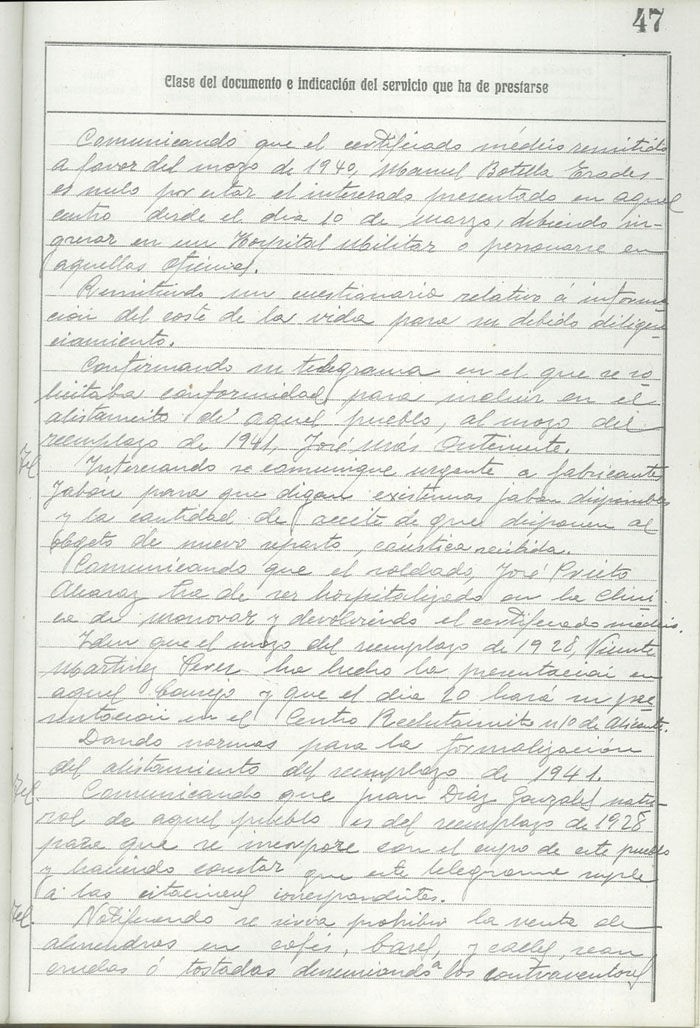 47
Clase del documento e indicación del servicio que ha de prestarse
Comunicando que el certificado médico remitido
a favor del mozo de 1940, Manuel Botella Erades
es nulo por estar el interesado presentado en aquel
centro desde el dia 10 de marzo, debiendo in-
gresar en un Hospital Militar o personarse en
aquellas Oficinas.
Remitiendo un cuestionario relativo á informa
ción del coste de la vida para su debido diligen
ciamiento.
Confirmando su telegrama en el que se so
licitaba conformidad para incluir en el
alistamiento de aquel pueblo, al mozo del
reemplazo de 1941, José Más Onteniente.
Tel. Interesando se comunique urgente a fabricantes
Jabón para que digan existencias jabon disponibles
y la cantidad de aceite de que disponen al
objeto de nuevo reparto, caústica recibida.
Comunicando que el soldado, José Prieto
Alcaraz ha de ser hospitalizado en la Clini
ca de Monovar y devolviendo el certificado médico.
Idem que el mozo del reemplazo de 1928, Vicente
Martinez Perez ha hecho la presentación en
aquel Consejo y que el dia 20 hará su pre
sentación en el Centro Reclutamiento nº 10 de Alicante.
Dando normas para la formalización
del alistamiento del reemplazo de 1941.
Tel. Comunicando que Juan Diáz Gonzalez natu-
ral de aquel pueblo es del reemplazo de 1928
para que se incorpore con el cupo de este pueblo
y haciendo constar que este telegrama suple
á las citaciones correspondientes.
Tel. Notificando se sirva prohibir la venta de
almendras en cafés, bares, y calles, sean
crudas ó tostadas denunciando a los contraventores